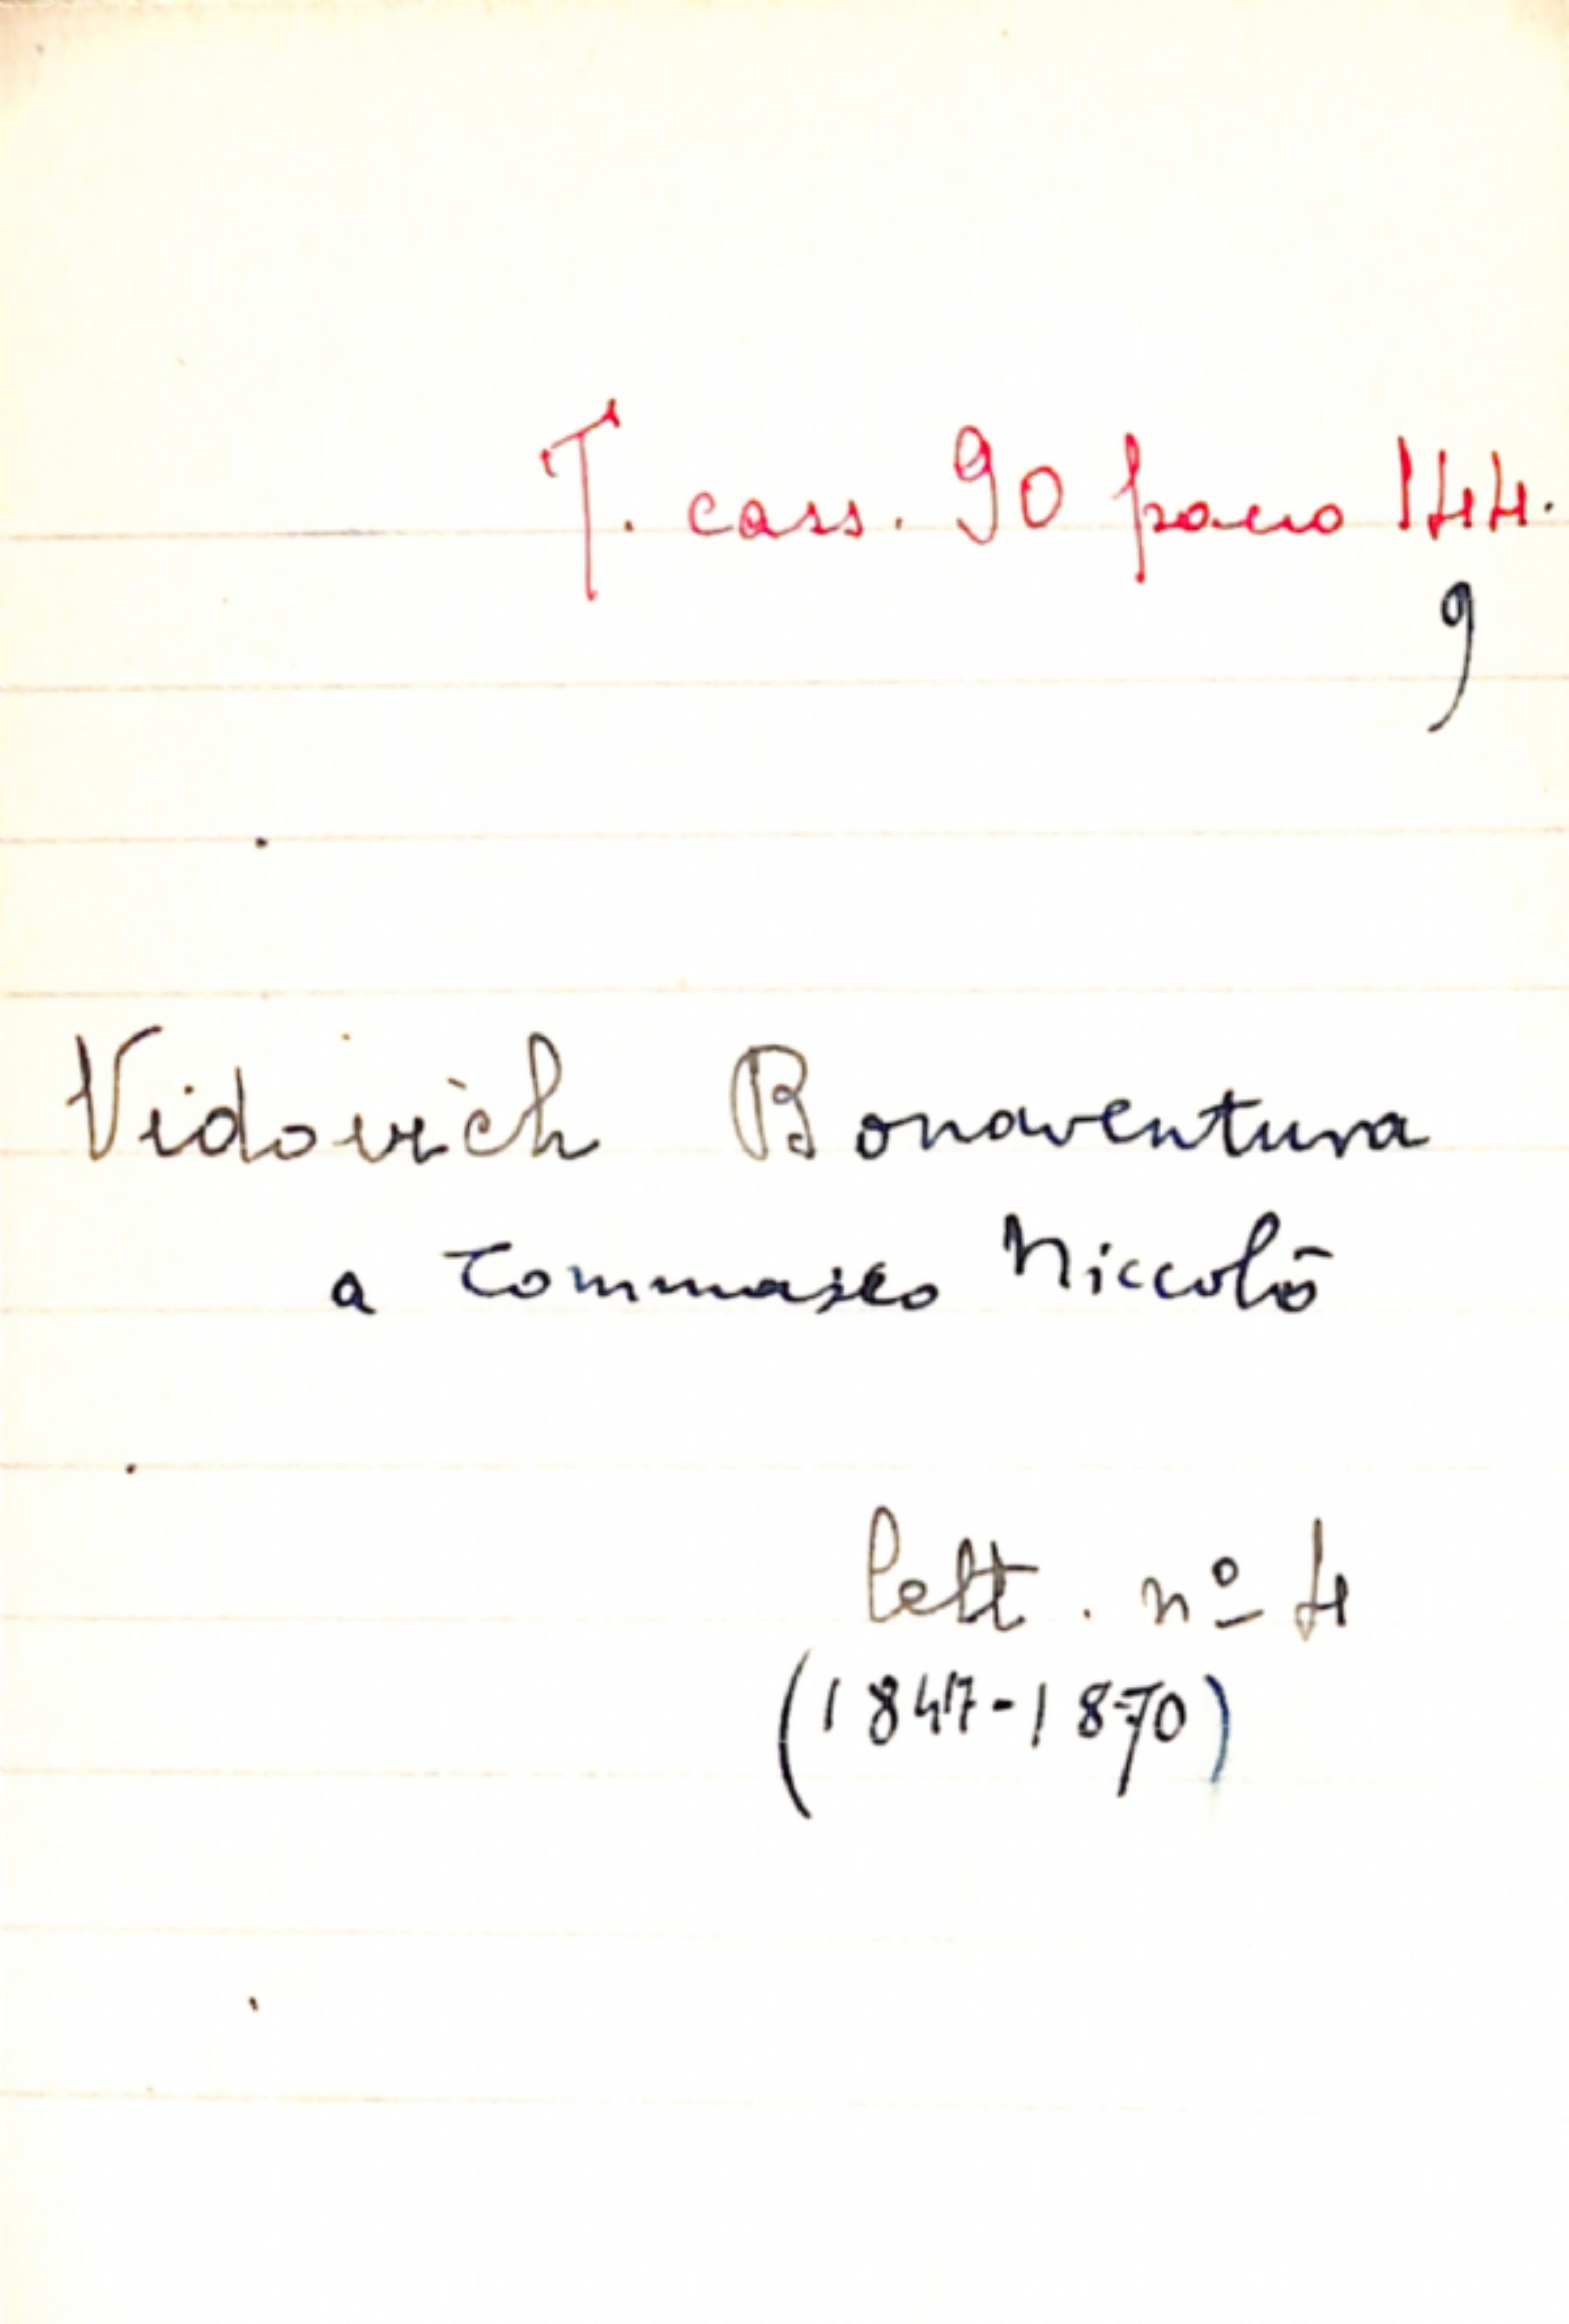 T. cass. 90 pacco 144.
9
Vidovich Bonaventura
a Tommaseo Niccolò
lett. nº 4
(1847-1870)